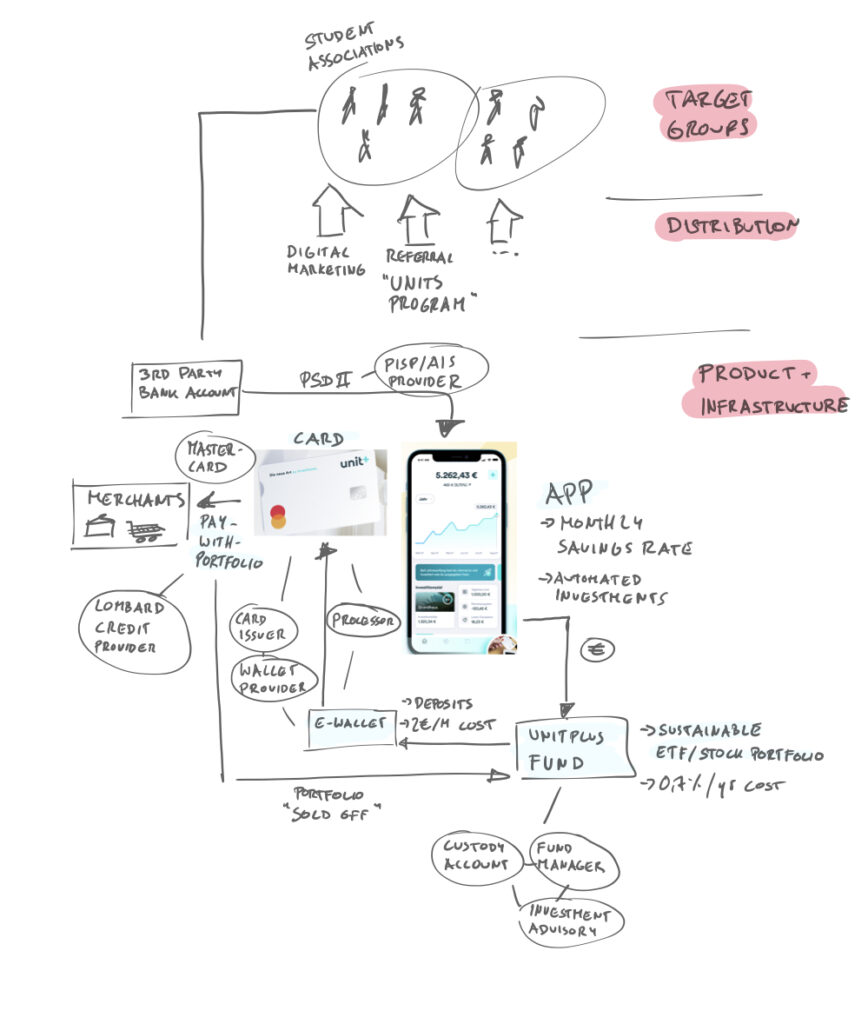 STUDENT
ASSOCIATIONS
TARGET
GROUPS
DISTRIBUTION
DIGITAL
MARKETING
REFERRAL
"UNITS
PROGRAM"
...
PRODUCT +
INFRASTRUCTURE
3RD PARTY
BANK ACCOUNT
PSD II
PISP/AIS
PROVIDER
MASTER-
CARD
CARD
unit+
MERCHANTS
PAY-
WITH-
PORTFOLIO
5.262,43 €
Jahr
5.262,43 €
APP
→ MONTHLY
SAVINGS RATE
→ AUTOMATED
INVESTMENTS
LOMBARD
CREDIT
PROVIDER
CARD
ISSUER
WALLET
PROVIDER
PROCESSOR
€
E-WALLET
→ DEPOSITS
→ 2€/M COST
UNITPLUS
FUND
→ SUSTAINABLE
ETF/STOCK PORTFOLIO
→ 0,7%/YR COST
PORTFOLIO
"SOLD OFF"
CUSTODY
ACCOUNT
FUND
MANAGER
INVESTMENT
ADVISORY